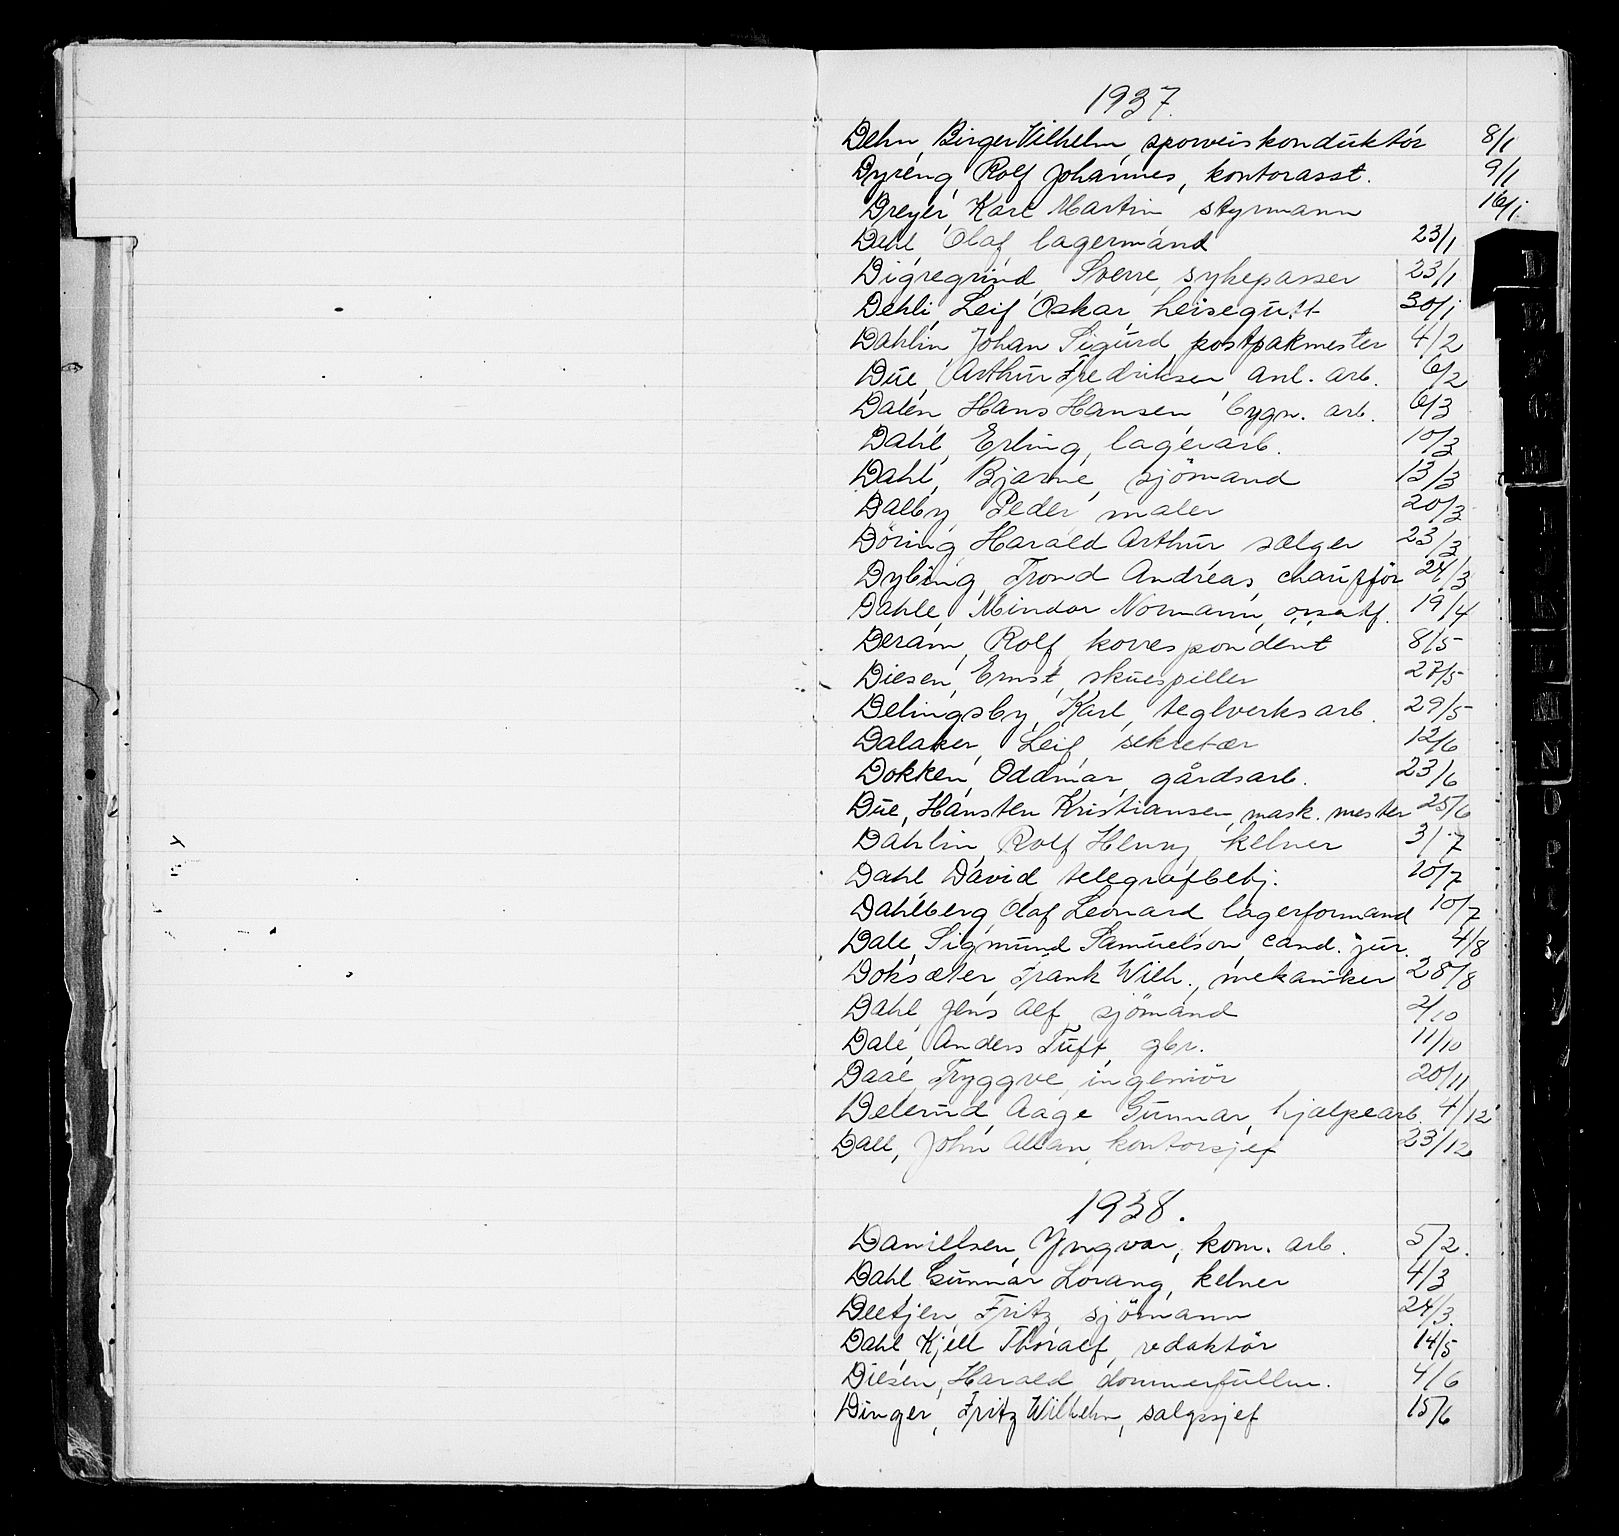 1937.
Dehn, Birger Vilhelm sporveiskonduktör 8/1
Dyreng, Rolf Johannes, kontorasst. 9/1
Dreyer, Karl Martin styrmann 16/1
Dahl Olaf lagermand 23/1
Digregrind, Sverre, sykepasser 23/1
Dehli, Leif Oskar, heisegutt 30/1
Dahlin Johan Sigurd postpakmester 4/2
Due, Arthur Fredriksen anl. arb. 6/2
Dalen Hans Hansen bygn. arb. 6/3
Dahl, Erling, lagerarb. 10/3
Dahl, Bjarne, sjömand 13/3
Dalby, Peder maler 20/3
Döring Harald Arthur selger 23/3
Dybing, Trond Andreas, chaufför 24/3
Dahle, Mindor Normann, 19/4
Deram, Rolf, korrespondent 8/5
Diesen, Ernst, skuespiller 27/5
Delingsby, Karl, teglverksarb. 29/5
Dalaker, Leif sekretær 12/6
Dokken, Oddmar, gårdsarb. 23/6
Due, Hansten Kristiansen, mask. mester 25/6
Dahlin, Rolf Henry kelner 3/7
Dahl, David telegrafbebj. 10/7
Dahlberg, Olaf Leonard lagerformand 10/7
Dale, Sigmund Samuelson cand. jur. 4/8
Doksæter, Frank Wilh., mekaniker 28/8
Dahl, Jens Alf, sjömand 2/10
Dale, Anders Tuft, gbr. 11/10
Daae, Tryggve, ingeniör 20/11
Delerud, Aage Gunnar, hjælpearb. 4/12
Dall, John Allan, kontorsjef 23/12
1938.
Daniellsen, Yngvar, kom. arb. 5/2.
Dahl Gunnar Lorang, kelner 4/3
Deetjen, Fritz, sjömann 24/3.
Dahl, Kjell Thoralf, redaktör 14/5
Diesen, Harald dommerfullm. 4/6
Dinger, Fritz Wilhelm, salgssjef 15/6
D
E
F
G
H
I
J
K
L
M
N
O
P